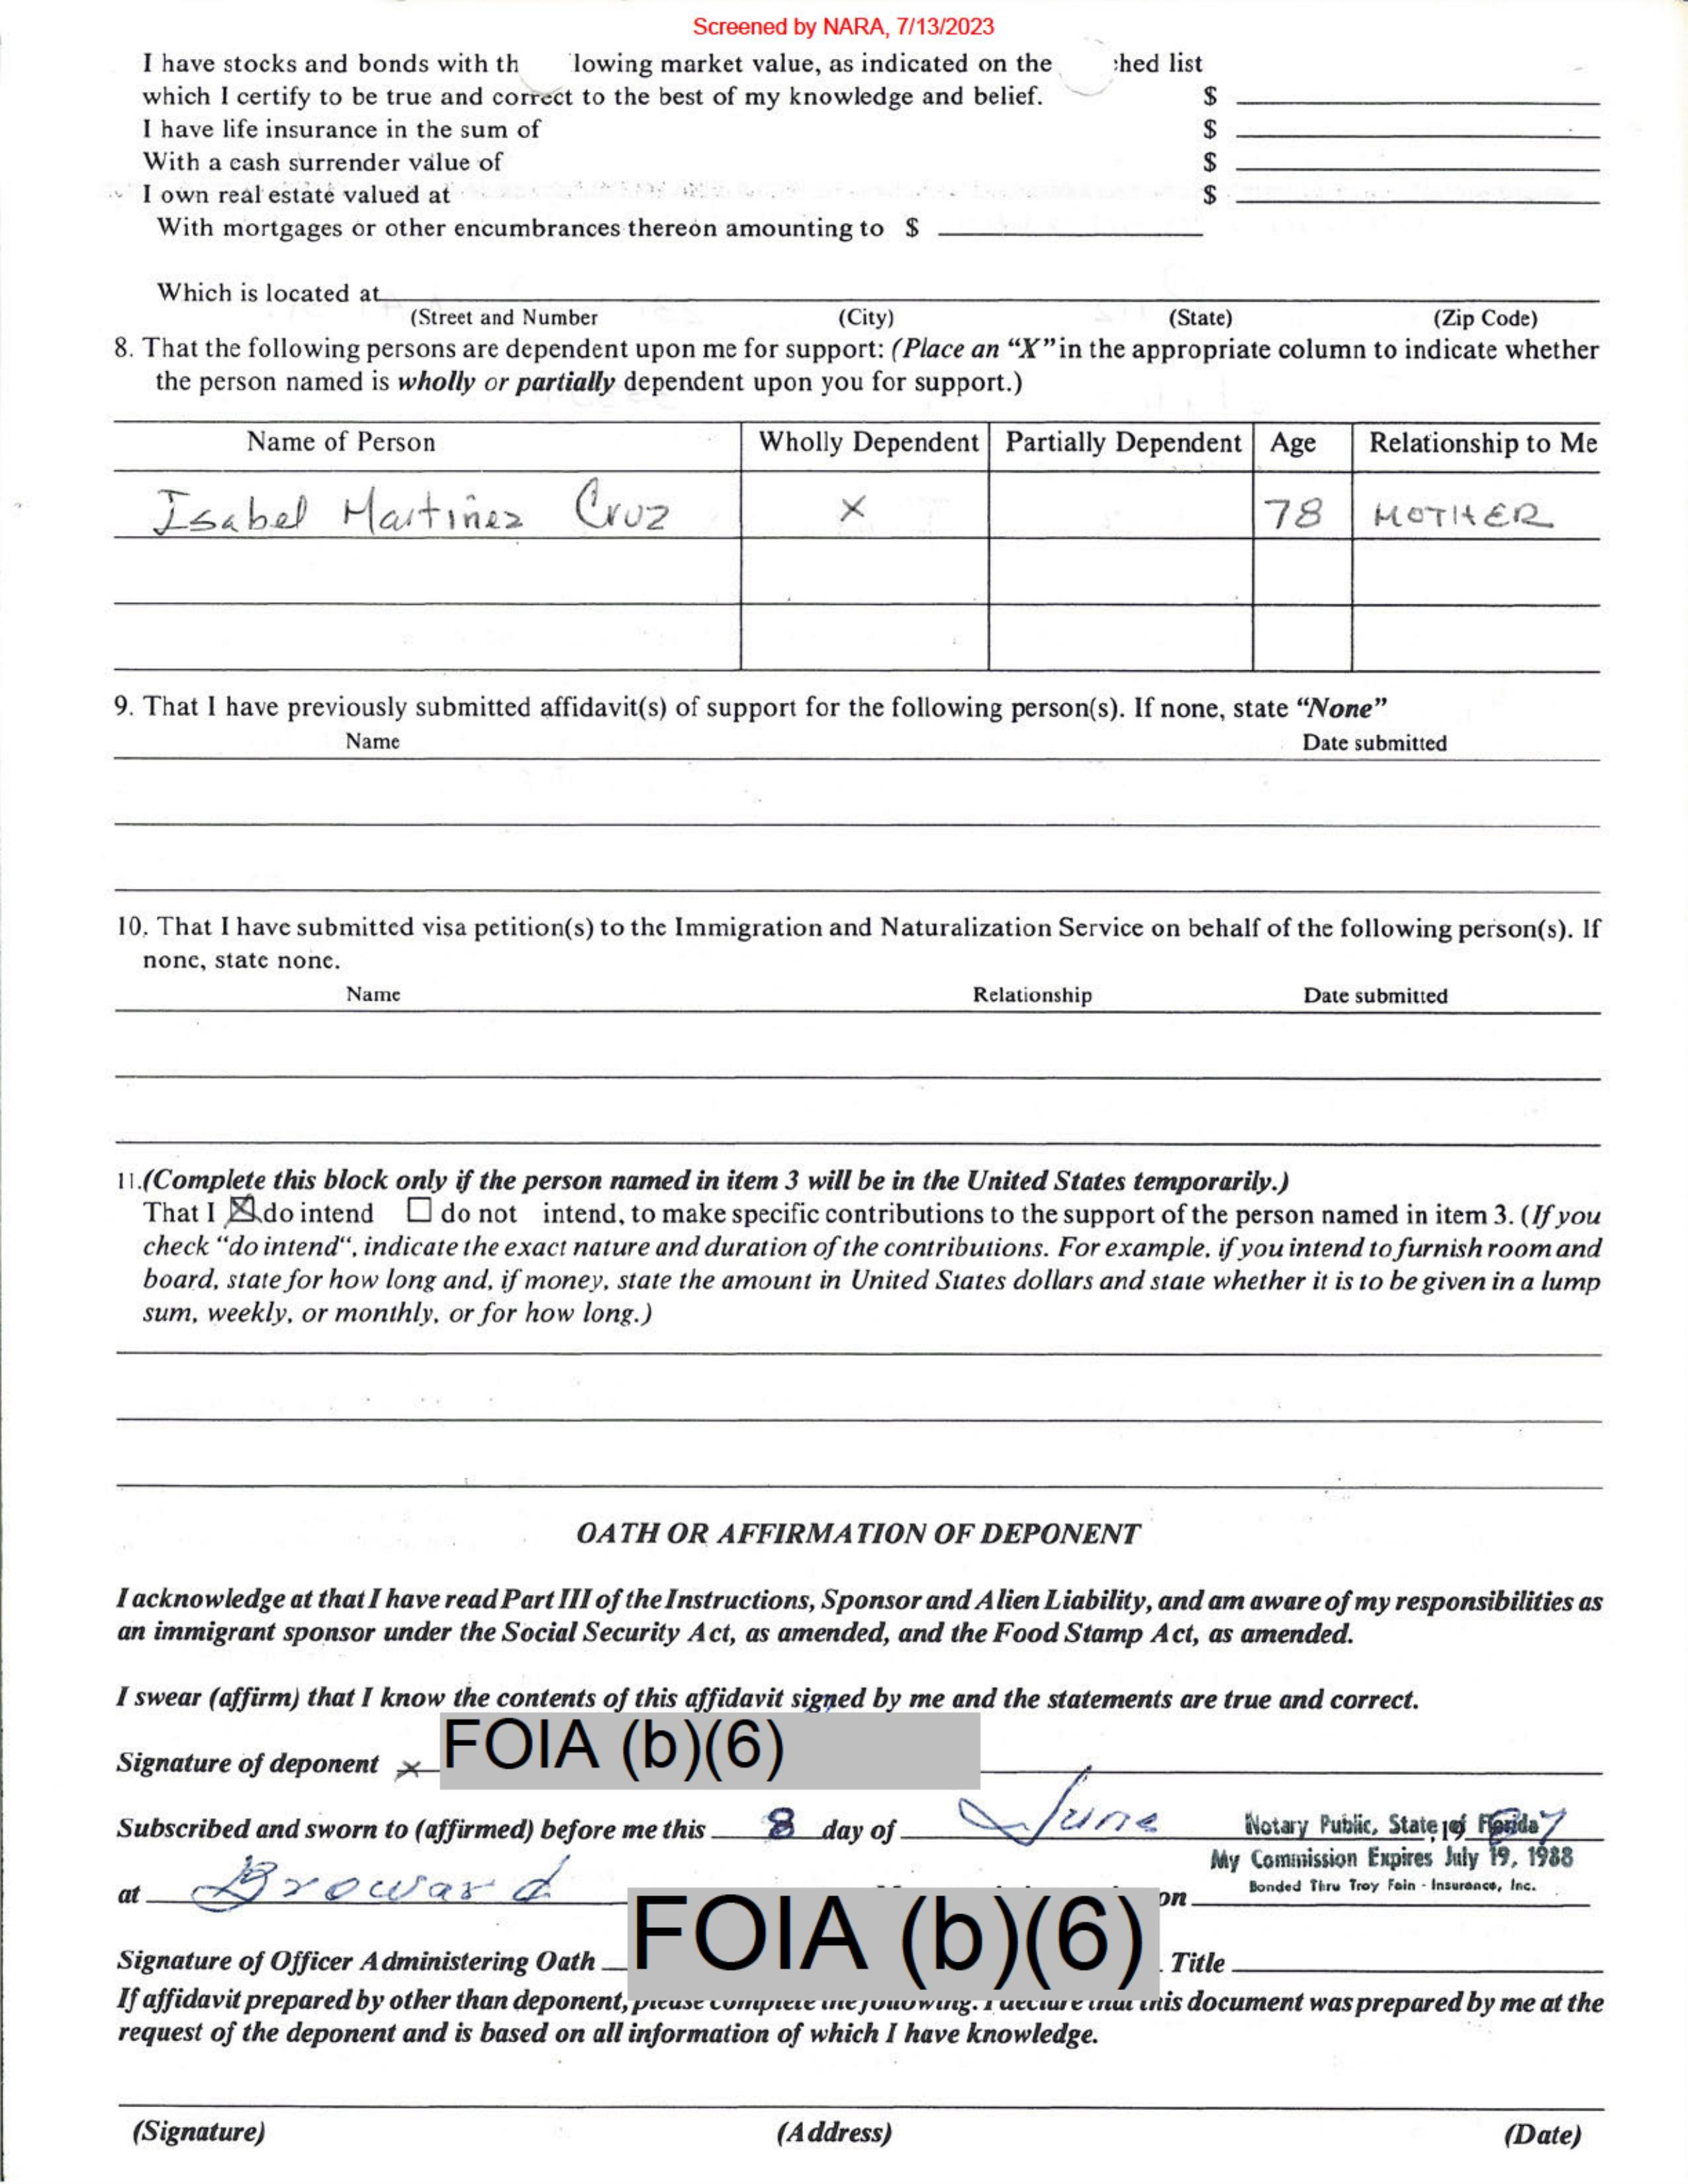 Screened by NARA, 7/13/2023
I have stocks and bonds with th lowing market value, as indicated on the ched list
which I certify to be true and correct to the best of my knowledge and belief. $
I have life insurance in the sum of $
With a cash surrender value of $
I own real estate valued at $
With mortgages or other encumbrances thereon amounting to $
Which is located at
(Street and Number (City) (State) (Zip Code)
8. That the following persons are dependent upon me for support: (Place an “X” in the appropriate column to indicate whether
the person named is wholly or partially dependent upon you for support.)
Name of Person Wholly Dependent Partially Dependent Age Relationship to Me
Isabel Martinez Cruz X 78 MOTHER
9. That I have previously submitted affidavit(s) of support for the following person(s). If none, state “None”
Name Date submitted
10. That I have submitted visa petition(s) to the Immigration and Naturalization Service on behalf of the following person(s). If
none, state none.
Name Relationship Date submitted
11.(Complete this block only if the person named in item 3 will be in the United States temporarily.)
That I ☒ do intend ☐ do not intend, to make specific contributions to the support of the person named in item 3. (If you
check “do intend“, indicate the exact nature and duration of the contributions. For example, if you intend to furnish room and
board, state for how long and, if money, state the amount in United States dollars and state whether it is to be given in a lump
sum, weekly, or monthly, or for how long.)
OATH OR AFFIRMATION OF DEPONENT
I acknowledge at that I have read Part III of the Instructions, Sponsor and Alien Liability, and am aware of my responsibilities as
an immigrant sponsor under the Social Security Act, as amended, and the Food Stamp Act, as amended.
I swear (affirm) that I know the contents of this affidavit signed by me and the statements are true and correct.
Signature of deponent x FOIA (b)(6)
Subscribed and sworn to (affirmed) before me this 8 day of June 19 87
Notary Public, State of Florida
My Commission Expires July 19, 1988
Bonded Thru Troy Fain - Insurance, Inc.
at Broward on
Signature of Officer Administering Oath FOIA (b)(6) Title
If affidavit prepared by other than deponent, please complete the following. I declare that this document was prepared by me at the
request of the deponent and is based on all information of which I have knowledge.
(Signature) (Address) (Date)